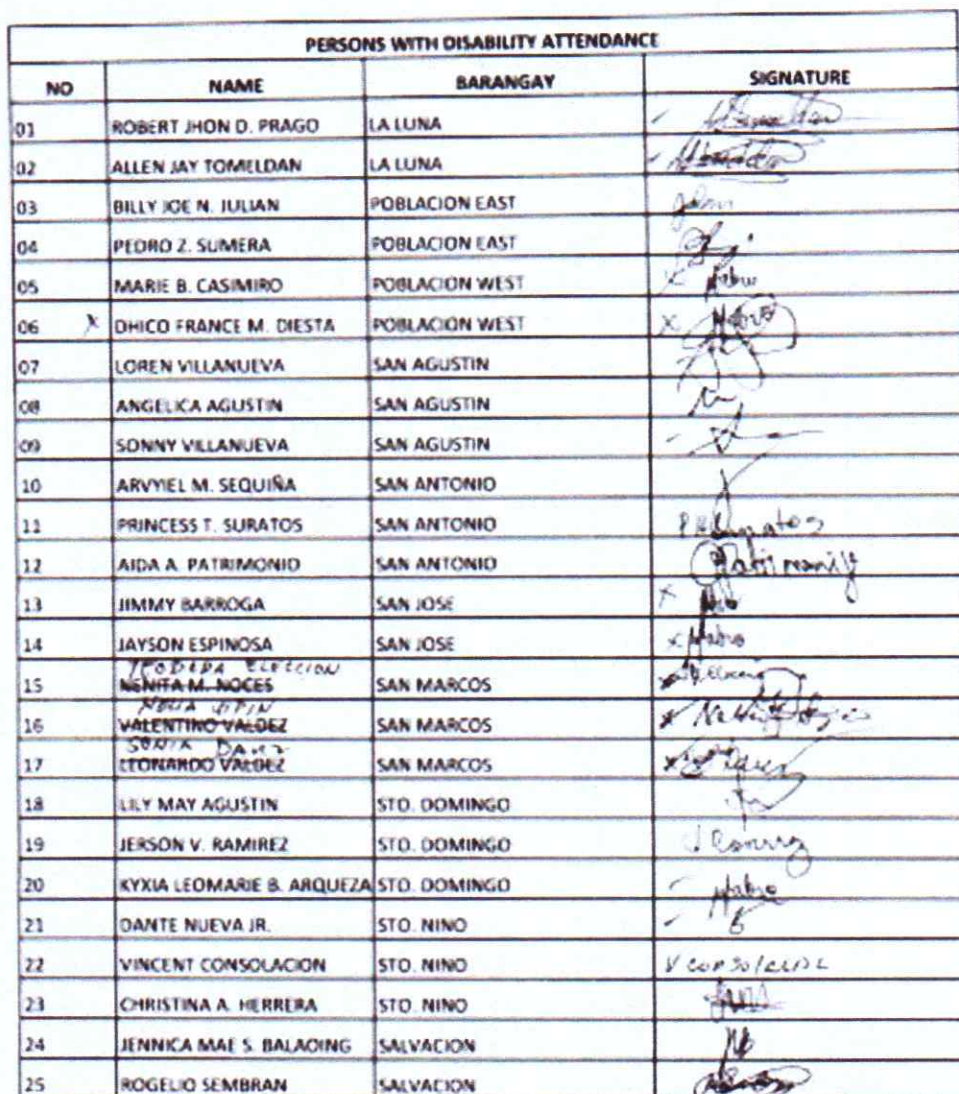 PERSONS WITH DISABILITY ATTENDANCE
NO NAME BARANGAY SIGNATURE
01 ROBERT JHON D. PRAGO LA LUNA
02 ALLEN JAY TOMELDAN LA LUNA
03 BILLY JOE N. JULIAN POBLACION EAST
04 PEDRO Z. SUMERA POBLACION EAST
05 MARIE B. CASIMIRO POBLACION WEST X
06 X DHICO FRANCE M. DIESTA POBLACION WEST X
07 LOREN VILLANUEVA SAN AGUSTIN
08 ANGELICA AGUSTIN SAN AGUSTIN
09 SONNY VILLANUEVA SAN AGUSTIN
10 ARVYIEL M. SEQUIÑA SAN ANTONIO
11 PRINCESS T. SURATOS SAN ANTONIO
12 AIDA A. PATRIMONIO SAN ANTONIO
13 JIMMY BARROGA SAN JOSE X
14 JAYSON ESPINOSA SAN JOSE X
ELECCION
15 NENITA M. NOCES SAN MARCOS
16 VALENTINO VALDEZ SAN MARCOS
SONIA
17 LEONARDO VALDEZ SAN MARCOS
18 LILY MAY AGUSTIN STO. DOMINGO
19 JERSON V. RAMIREZ STO. DOMINGO
20 KYXIA LEOMARIE B. ARQUEZA STO. DOMINGO
21 DANTE NUEVA JR. STO. NINO
22 VINCENT CONSOLACION STO. NINO
23 CHRISTINA A. HERRERA STO. NINO
24 JENNICA MAE S. BALAOING SALVACION
25 ROGELIO SEMBRAN SALVACION